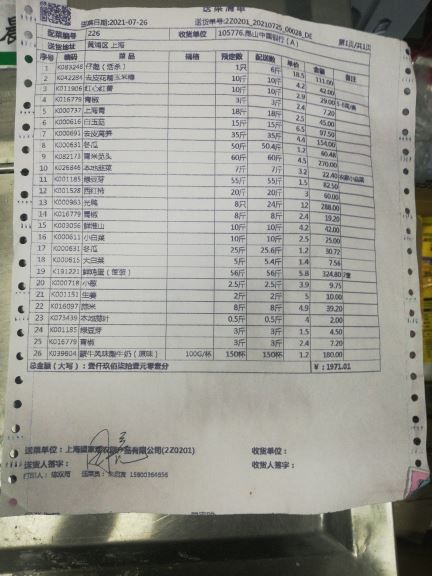 送菜清单
送菜日期:2021-07-26 送货单号:2Z0201_20210725_00028_DE
配菜编号 226 收货单位 105776,昆山中国银行(A) 第1页/共1页
送货地址 黄浦区 上海
序号 编码 菜品 规格 预定数 配送数 单价 金额 备注
1 K083248 仔鹅(活杀) 1只 6斤 18.5 111.00
2 K042284 去皮花糯玉米棒 10斤 10斤 4.2 42.00
3 K011906 红心红薯 10斤 10斤 2.9 29.00
4 K016779 青椒 3斤 3斤 2.4 7.20
5 K000737 上海青 18斤 18斤 2.5 45.00
6 K000616 白玉菇 15斤 15斤 6.5 97.50
7 K000691 去皮莴笋 35斤 35斤 4.4 154.00
8 K000631 冬瓜 50斤 50.4斤 1.2 60.48
9 K082173 60斤 60斤 4.5 270.00
10 K026846 本地韭菜 7斤 7斤 3.2 22.40
11 K001185 绿豆芽 55斤 55斤 1.5 82.50
12 K001528 西红柿 20斤 20斤 3 60.00
13 K000963 光鸭 8只 24斤 12 288.00
14 K016779 青椒 8斤 8斤 2.4 19.20
15 K003056 鲜淮山 10斤 10斤 4.2 42.00
16 K000611 小白菜 10斤 10斤 2.5 25.00
17 K000631 冬瓜 25斤 25.6斤 1.2 30.72
18 K000615 大白菜 5斤 5.4斤 1.4 7.56
19 K191221 鲜鸡蛋(筐装) 56斤 56斤 5.8 324.80
20 K000718 小葱 2.5斤 2.5斤 3.9 9.75
21 K001151 生姜 2斤 2斤 5 10.00
22 K016097 8斤 8斤 4.9 39.20
23 K073439 0.5斤 0.5斤 4 2.00
24 K001185 绿豆芽 3斤 3斤 1.5 4.50
25 K016779 青椒 3斤 3斤 2.4 7.20
26 K039604 蒙牛风味酸牛奶(原味) 100G/杯 150杯 150杯 1.2 180.00
总金额(大写):壹仟玖佰柒拾壹元零壹分 ¥:1971.01
送菜单位:上海 有限公司(2Z0201) 收货单位:
送货人签字: 收货人签字:
打印人: 送菜员: 15800364656